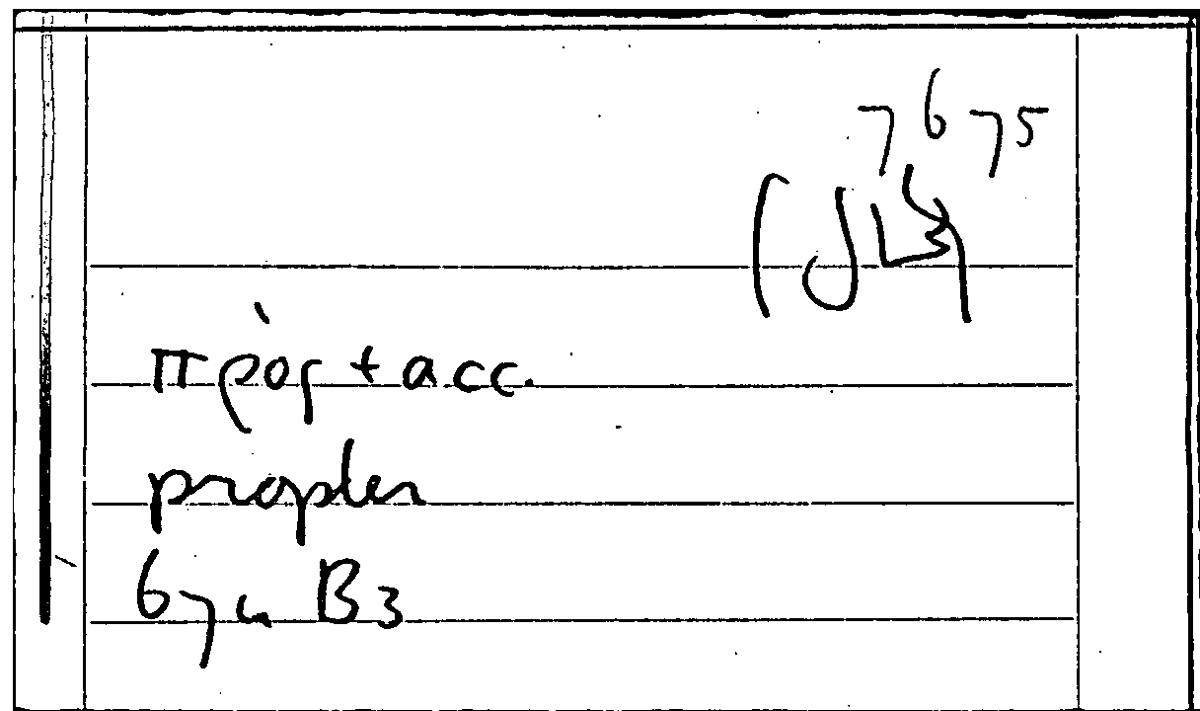 7675
πρὸς + acc.
propter
67a B3